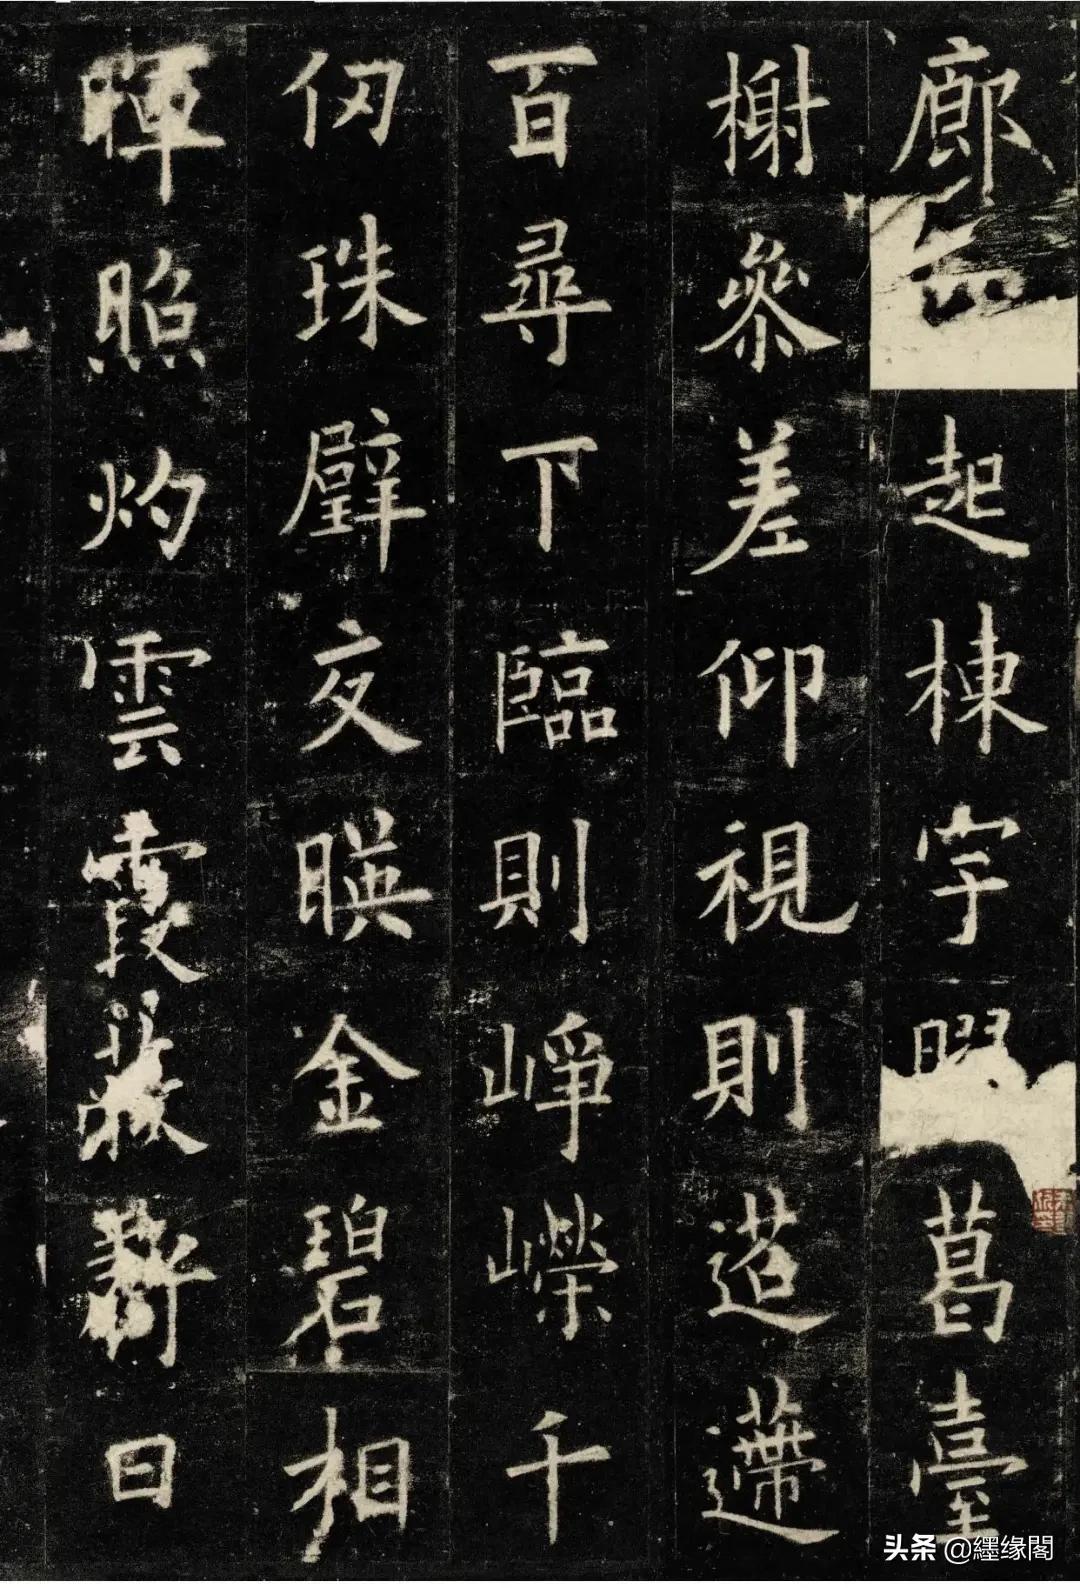 廊起棟宇膠葛臺
榭參差仰視則迢遰
百尋下臨則崢嶸千
仞珠璧交暎金碧相
暉照灼雲霞蔽虧日
头条 @纆缘閣